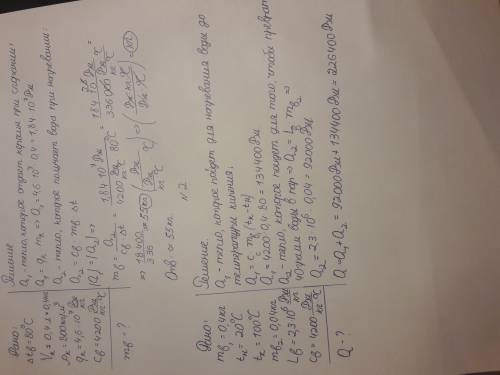 Дано:
Δtв=80°C
Vк=0,4л=0,4кг
ρк=800кг/м³
qк=4,6·10⁷ Дж/кг
cв=4200 Дж/кг·°C
mв-?
Решение
Q₁-тепло, которое отдаёт керосин при сгорании:
Q₁=qк mк => Q₁=4,6·10⁷·0,4=1,84·10⁷Дж
Q₂-тепло, которое получает вода при нагревании:
Q₂=cв mв Δt
|Q₁|=|Q₂| =>
mв = Q₂/cв Δt = 1,84·10⁷Дж/4200 Дж/кг·°C 80°C = 1,84·10⁷Дж/336000 Дж/кг·°C °C =
=> 18400/336 ≈ 55кг (Дж/Дж/кг·°C °C) => (Дж·кг·°C/Дж·°C) = кг
Отв ≈ 55кг.
N2
Дано:
mв₁=0,4кг
tн=20°C
tк=100°C
mв₂=0,04кг
Lв=2,3·10⁶ Дж/кг
cв=4200 Дж/кг·°C
Q-?
Решение
Q₁-тепло, которое пойдет для нагревания воды до
температуры кипения:
Q₁=cв mв(tк-tн)
Q₁=4200·0,4·80=134400Дж
Q₂-тепло, которое пойдет для того, чтобы преврат
40грамм воды в пар => Q₂=Lв mв₂ =>
Q₂=2,3·10⁶·0,04=92000Дж
Q=Q₁+Q₂=92000Дж+134400Дж=226400Дж